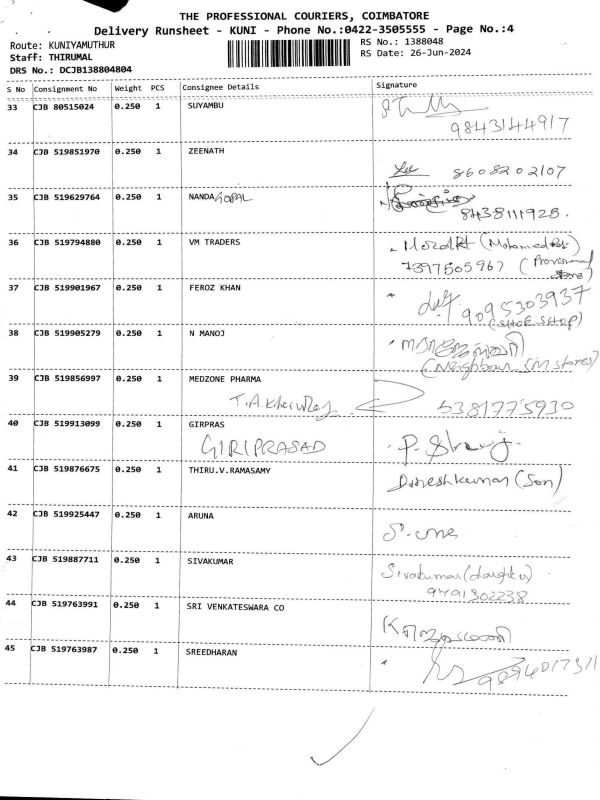 THE PROFESSIONAL COURIERS, COIMBATORE
Delivery Runsheet - KUNI - Phone No.:0422-3505555 - Page No.:4
Route: KUNIYAMUTHUR
RS No.: 1388048
Staff: THIRUMAL
RS Date: 26-Jun-2024
DRS No.: DCJB138804804
S No Consignment No Weight PCS Consignee Details Signature
33 CJB 80515024 0.250 1 SUYAMBU
9843144917
34 CJB 519851970 0.250 1 ZEENATH
8608202107
35 CJB 519629764 0.250 1 NANDAGOPAL
8438111928.
36 CJB 519794880 0.250 1 VM TRADERS
7397505967 (Provisional
37 CJB 519901967 0.250 1 FEROZ KHAN
9095303937
(SHOE SHOP)
38 CJB 519905279 0.250 1 N MANOJ
(Neighbour (M stores)
39 CJB 519856997 0.250 1 MEDZONE PHARMA
6381775930
40 CJB 519913099 0.250 1 GIRPRAS
GIRIPRASAD
41 CJB 519876675 0.250 1 THIRU.V.RAMASAMY
Dineshkumar (Son)
42 CJB 519925447 0.250 1 ARUNA
43 CJB 519887711 0.250 1 SIVAKUMAR
Sivakumar (daughter)
9791302238
44 CJB 519763991 0.250 1 SRI VENKATESWARA CO
45 CJB 519763987 0.250 1 SREEDHARAN